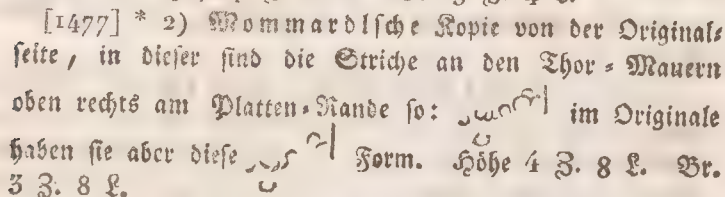 [1477] * 2) Mommardische Kopie von der Original-
seite, in dieser sind die Striche an den Thor-Mauern
oben rechts am Platten-Rande so: im Originale
haben sie aber diese Form. Höhe 4 Z. 8 L. Br.
3 Z. 8 L.